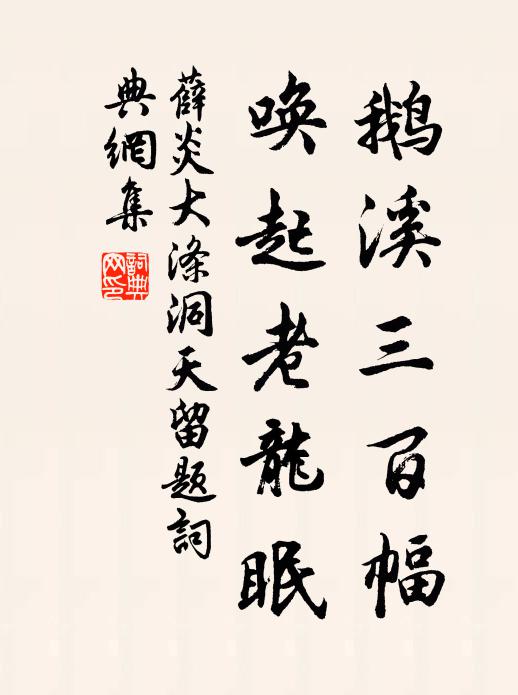 鵝溪三百幅
喚起老龍眠
薛炎大滌洞天留題詞
典網集
詞典網印